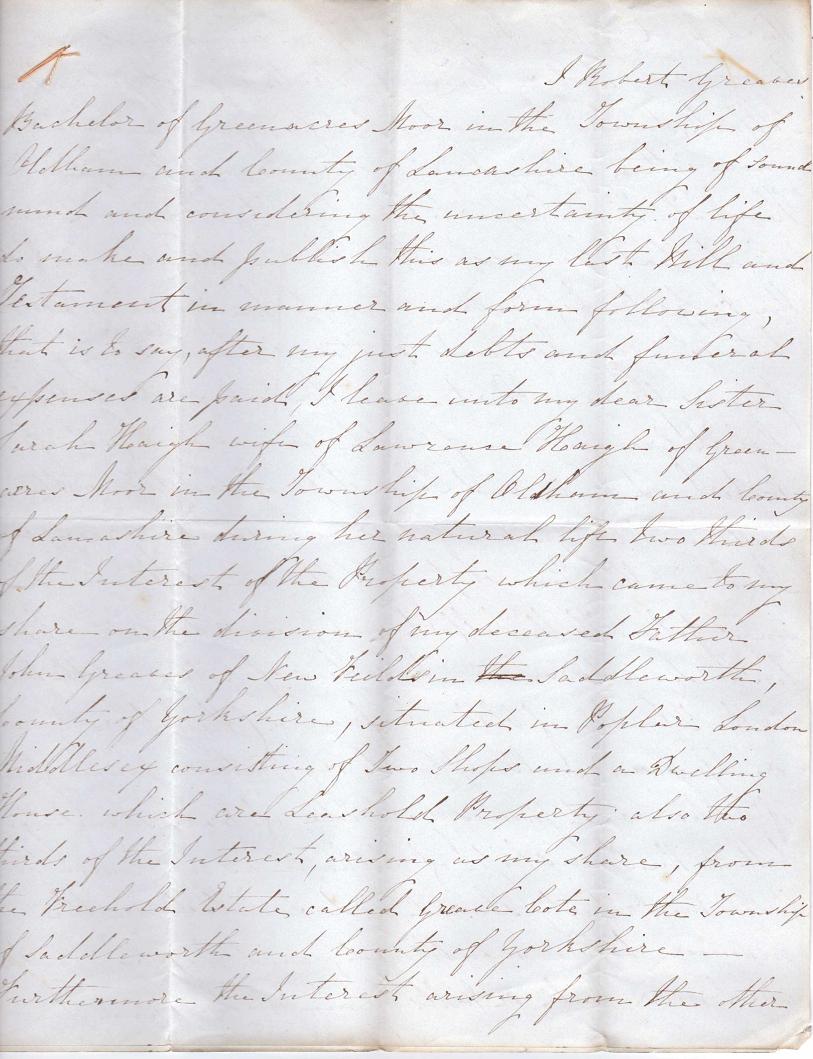 I Robert Greaves
Bachelor of Greenacres Moor in the Township of
Oldham and County of Lancashire being of sound
mind and considering the uncertainty of life
do make and publish this as my last Will and
Testament in manner and form following,
that is to say, after my just debts and funeral
expenses are paid, I leave unto my dear Sister
Sarah Haigh wife of Lawrence Haigh of Green-
acres Moor in the Township of Oldham and County
of Lancashire during her natural life two thirds
of the Interest of the Property which came to my
share on the division of my deceased Father
John Greaves of New Feilds in the Saddleworth,
County of Yorkshire, situated in Popler London
Middlesex consisting of Two Shops and a Dwelling
House. which are Leashold Property also two
thirds of the Interest, arising as my share, from
the Freehold Estate called Greave Cote in the Township
of Saddleworth and County of Yorkshire —
Furthermore the Interest arising from the other